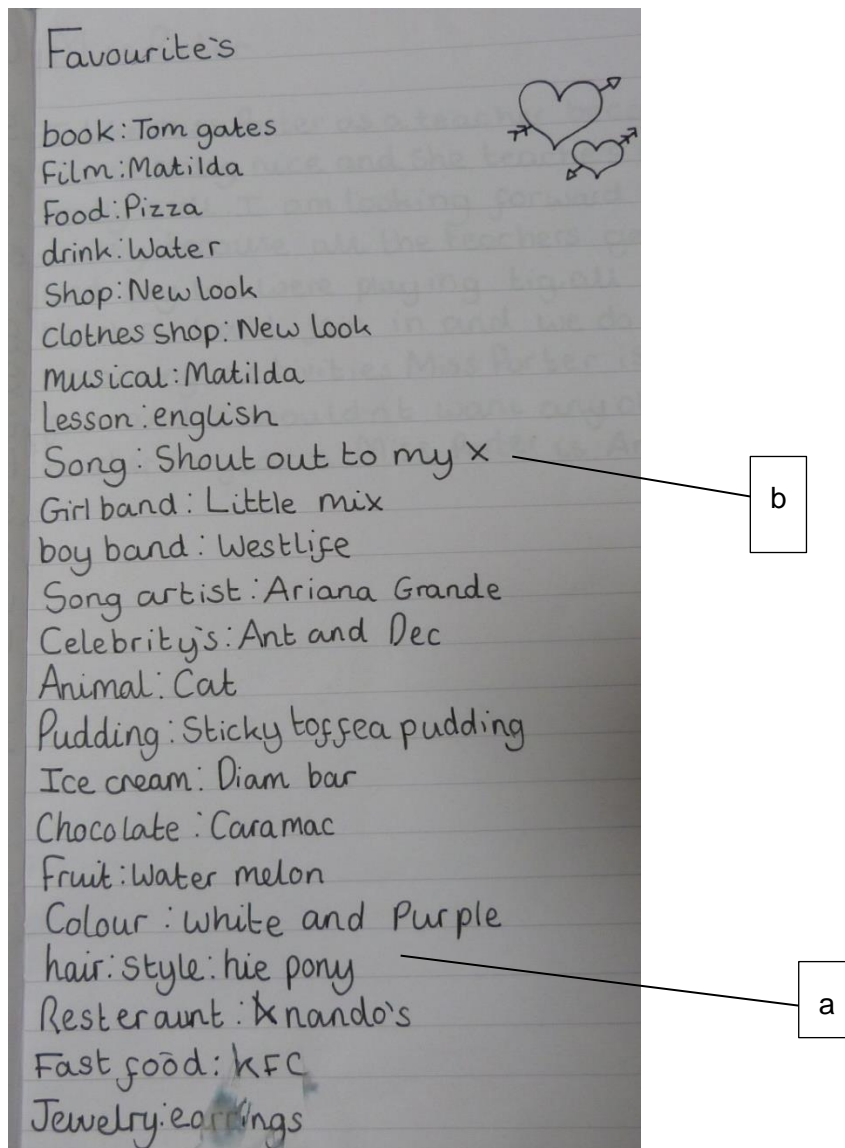 Favourite's
book: Tom gates
Film: Matilda
Food: Pizza
drink: Water
Shop: New look
clothes shop: New look
musical: Matilda
Lesson: english
Song: Shout out to my x
b
Girl band: Little mix
boy band: Westlife
Song artist: Ariana Grande
Celebrity's: Ant and Dec
Animal: Cat
Pudding: Sticky toffea pudding
Ice cream: Diam bar
Chocolate: Caramac
Fruit: Water melon
Colour: white and Purple
hair: style: hie pony
a
Resteraunt: nando's
Fast food: KFC
Jewelry: earrings